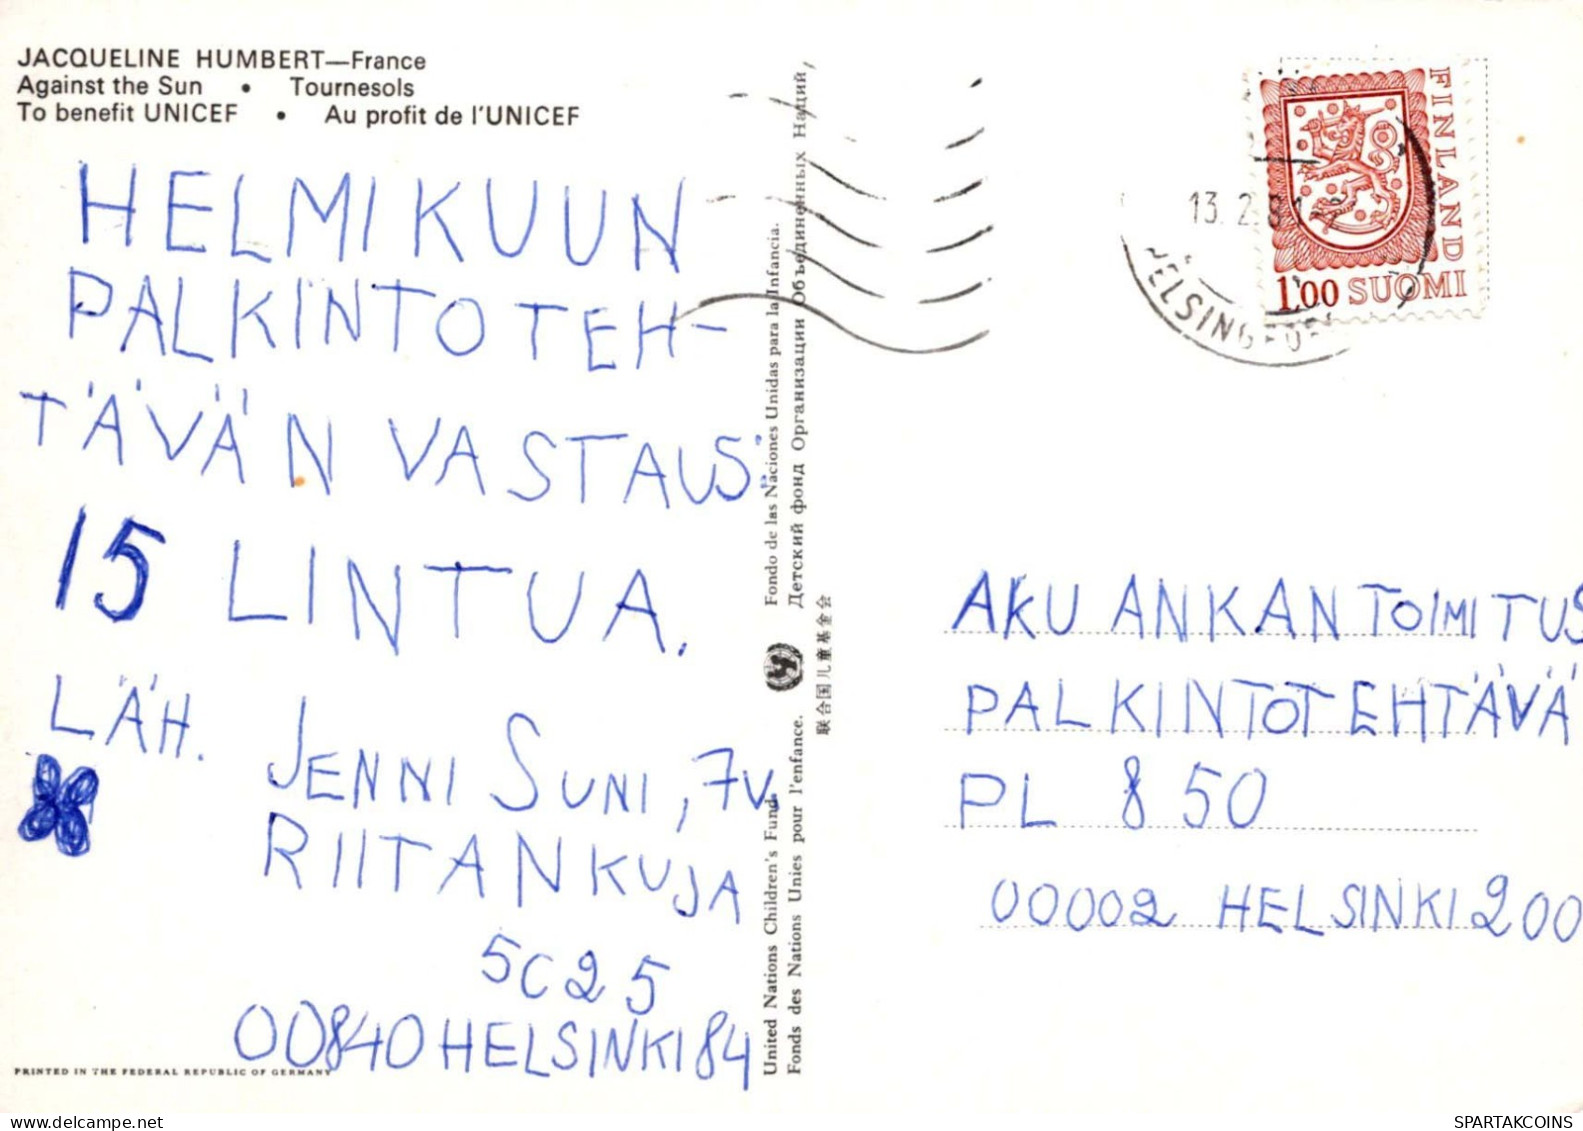 JACQUELINE HUMBERT—France
Against the Sun • Tournesols
To benefit UNICEF • Au profit de l'UNICEF
HELMIKUUN
PALKINTOTEH-
TÄVÄN VASTAUS:
15 LINTUA.
LÄH.
JENNI SUNI, 7v.
RIITANKUJA
5C25
00840 HELSINKI 84
PRINTED IN THE FEDERAL REPUBLIC OF GERMANY
United Nations Children's Fund.
Fonds des Nations Unies pour l'enfance.
Fondo de las Naciones Unidas para la Infancia.
Детский фонд Организации Объединенных Наций,
联合国儿童基金会
FINLAND
1,00 SUOMI
13.2.81
HELSINGFORS
AKU ANKAN TOIMITUS
PALKINTOTEHTÄVÄ
PL 850
00002 HELSINKI 200
SPARTAKCOINS